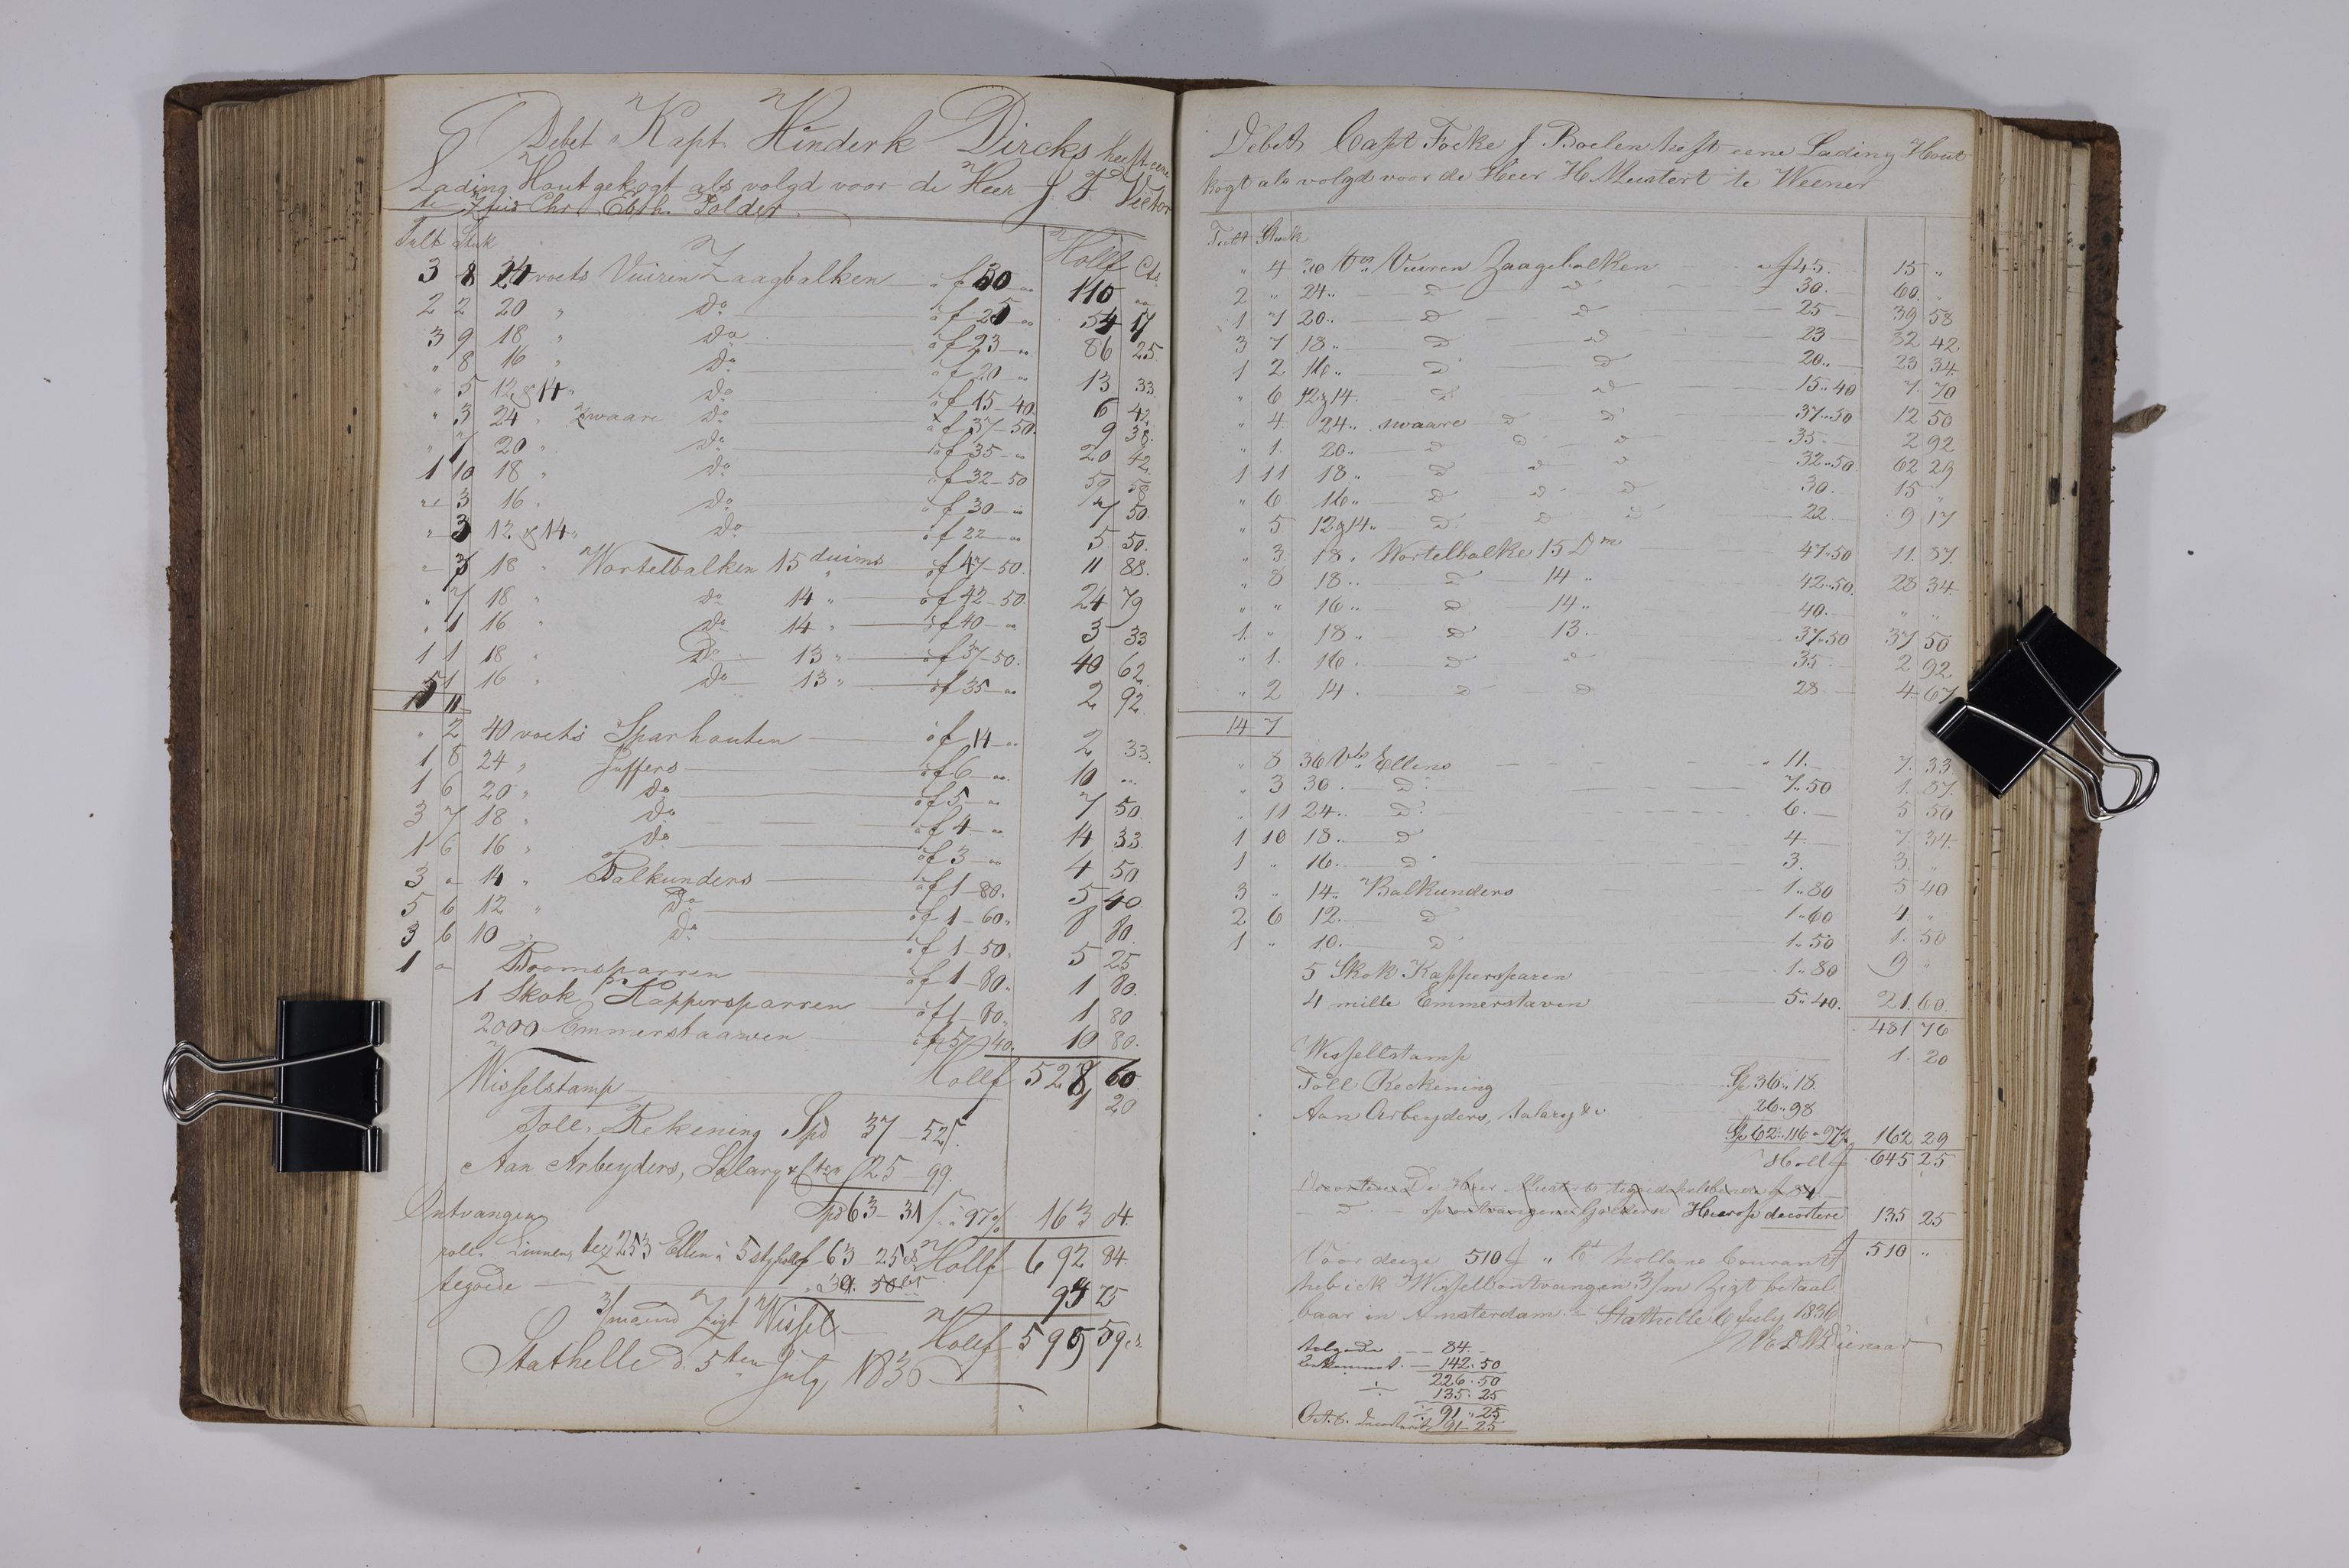 Debet Kapt. Hinderk Dircks heeft eene
Lading Hout gekogt als volgd voor de Heer J. F. Victor
te Chr. Eberh. Polder
Tult Stuk Hollf Cts
3 8 24 voets Vuiren Zaagbalken á f 30 " 110 "
2 2 20 " Do á f 25 " 54 17
3 9 18 " Do á f 23 " 86 25
" 8 16 " Do á f 20 " 13 33
" 5 12 & 14 " Do á f 15-40 6 42
" 3 24 " Zwaare Do á f 37-50 9 38
" 7 20 " Do á f 35 " 20 42
1 10 18 " Do á f 32-50 59 58
" 3 16 " Do á f 30 " 7 50
" 3 12 & 14 " Do á f 22 " 5 50
" 3 18 " Wortelbalken 15 duims á f 47-50 11 88
" 7 18 " Do 14 " á f 42-50 24 79
" 1 16 " Do 14 " á f 40 " 3 33
1 1 18 " Do 13 " á f 37-50 40 62
" 1 16 " Do 13 " á f 35 " 2 92
11
" 2 40 voets Sparhouten á f 14 " 2 33
1 8 24 " Juffers á f 6 " 10 "
1 6 20 " Do á f 5 " 7 50
3 7 18 " Do á f 4 " 14 33
1 6 16 " Do á f 3 " 4 50
3 " 14 " Balkunders á f 1-80 5 40
5 6 12 " Do á f 1-60 8 80
3 6 10 " Do á f 1-50 5 25
1 " Boomsparren á f 1-80 1 80
1 Skok Kappersparren á f 1-80 1 80
2000 Emmerstaaven á f 5-40 10 80
Hollf 528 60
Wisselstamp 1 20
Toll Rekening Spd 37-52
Aan Arbeyders, Salary & 25-99
Spd 63-31 á 97 163 04
Ontvangen
roll. Linnen, 253 Ellen á 5 63-25 Hollf 692 84
tegoede 34.50
97 25
3/maand Zigt Wissel Hollf 595 59
Stathelle d. 5ten July 1836
Debet Capt Focke J Boelen heft eene Lading Hout
kogt als volgd voor de Heer H Meistert te Weener
Tult Stuck
" 4 30 Vts Vuuren Zaagebalken á f 45 15 "
2 " 24 " D D 30 60 "
1 7 20 " D D 25 39 58
3 7 18 " D D 23 82 42
1 2 16 " D D 20 23 34
" 6 12 & 14 D D 15.40 7 70
" 4 24 " swaare D D 37.50 12 50
" 1 20 " D D D 35 2 92
1 11 18 " D D D 32.50 62 29
" 6 16 " D D D 30 15 "
" 5 12 & 14 " D D D 22 9 17
" 3 18 " Wortelbalke 15 Dm 47.50 11 87
" 8 18 " D 14 " 42.50 28 34
" " 16 " D 14 " 40 " "
1 " 18 " D 13 37.50 37 50
" 1 16 " D D 35 2 92
" 2 14 D D 28 4 67
14 7
" 8 36 Vts Ellens 11 7 33
" 3 30 D 7.50 1 87
" 11 24 D 6 5 50
1 10 18 D 4 7 34
1 " 16 D 3 3 "
3 " 14 " Balkunders 1.80 5 40
2 6 12 D 1.60 4 "
1 " 10 D 1.50 1 50
5 Skok Kappersparen 1.80 9 "
4 mille Emmerstaven 5.40 21 60
481 76
Wissellstamp 1 20
Toll Reckening Sp 36.18
Aan Arbeyders, Salary & 26.98
Sp 62.116 á 97 162 29
Hollf 645 25
De Heer
D Hierop decortere 135 25
Voor deeze 510 f " Ct holland Courant f 510 "
heb ick Wissell ontvangen 3/m Zigt betaal
baar in Amsterdam. Stathelle 6 July 1836
84.
142.50
226.50
135.25
91.25
91.25